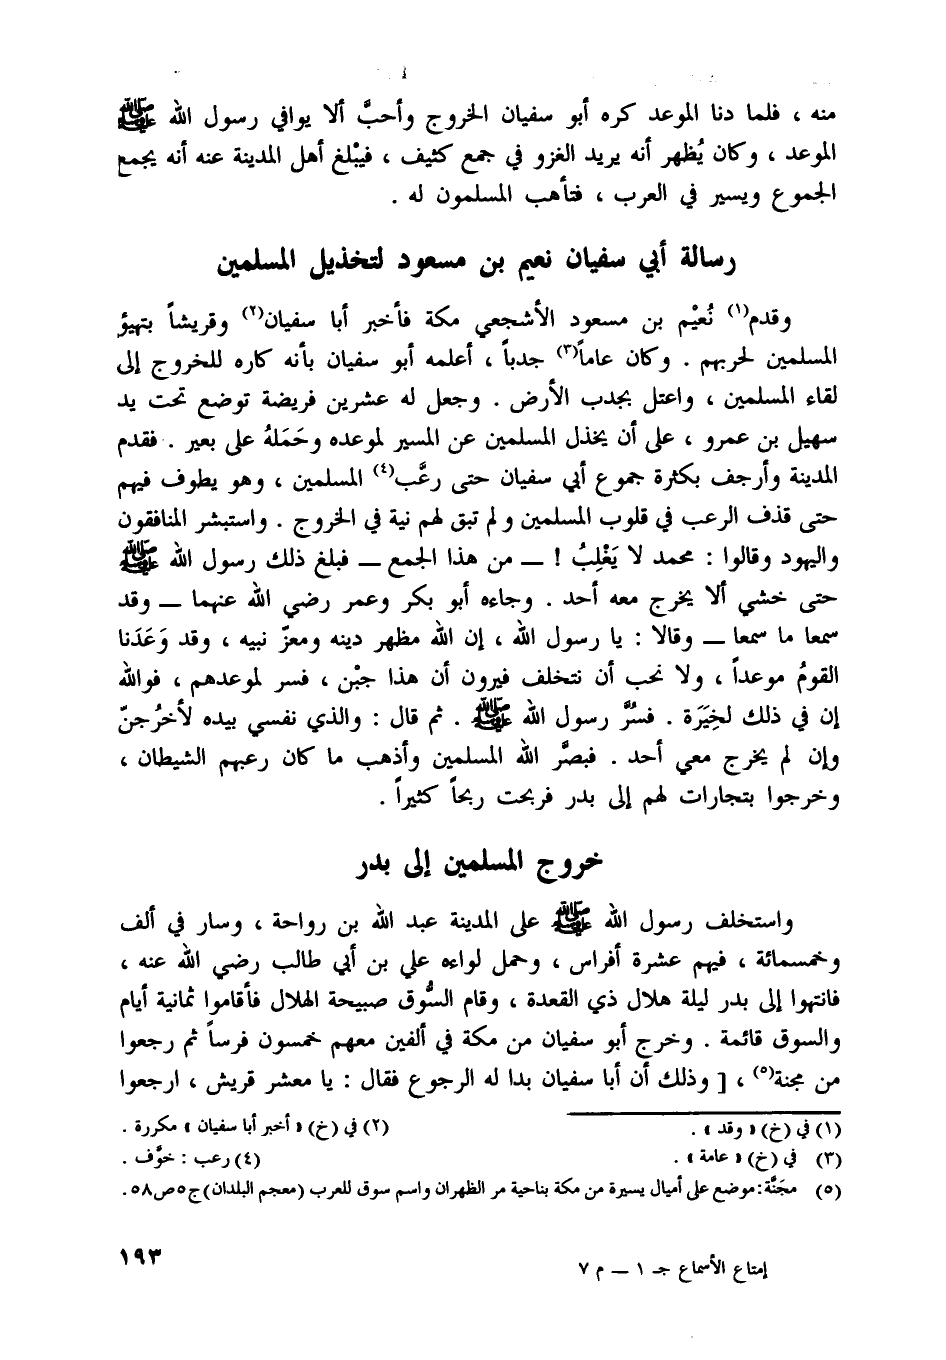 منه ، فلما دنا الموعد كره أبو سفيان الخروج وأحبَّ ألا يوافي رسول الله ﷺ
الموعد ، وكان يُظهر أنه يريد الغزو في جمع كثيف ، فيبْلغ أهل المدينة عنه أنه يجمع
الجموع ويسير في العرب ، فتأهب المسلمون له .
رسالة أبي سفيان نعيم بن مسعود لتخذيل المسلمين
وقدم(١) نُعيْم بن مسعود الأشجعي مكة فأخبر أبا سفيان(٢) وقريشاً بتهيؤ
المسلمين لحربهم . وكان عاماً(٣) جدباً ، أعلمه أبو سفيان بأنه كاره للخروج إلى
لقاء المسلمين ، واعتل بجدب الأرض . وجعل له عشرين فريضة توضع تحت يد
سهيل بن عمرو ، على أن يخذل المسلمين عن المسير لموعده وحَمَلهُ على بعير . فقدم
المدينة وأرجف بكثرة جموع أبي سفيان حتى رعَّب(٤) المسلمين ، وهو يطوف فيهم
حتى قذف الرعب في قلوب المسلمين ولم تبق لهم نية في الخروج . واستبشر المنافقون
واليهود وقالوا : محمد لا يَغْلِبُ ! ــ من هذا الجمع ــ فبلغ ذلك رسول الله ﷺ
حتى خشي ألا يخرج معه أحد . وجاءه أبو بكر وعمر رضي الله عنهما ــ وقد
سمعا ما سمعا ــ وقالا : يا رسول الله ، إن الله مظهر دينه ومعزّ نبيه ، وقد وَعَدَنا
القومُ موعداً ، ولا نحب أن نتخلف فيرون أن هذا جبْن ، فسر لموعدهم ، فوالله
إن في ذلك لخِيَرَة . فسُرَّ رسول الله ﷺ . ثم قال : والذي نفسي بيده لأخرُجنّ
وإن لم يخرج معي أحد . فبصَّر الله المسلمين وأذهب ما كان رعبهم الشيطان ،
وخرجوا بتجارات لهم إلى بدر فربحت ربحاً كثيراً .
خروج المسلمين إلى بدر
واستخلف رسول الله ﷺ على المدينة عبد الله بن رواحة ، وسار في ألف
وخمسمائة ، فيهم عشرة أفراس ، وحمل لواءه علي بن أبي طالب رضي الله عنه ،
فانتهوا إلى بدر ليلة هلال ذي القعدة ، وقام السُّوق صبيحة الهلال فأقاموا ثمانية أيام
والسوق قائمة . وخرج أبو سفيان من مكة في ألفين معهم خمسون فرساً ثم رجعوا
من مجنة(٥) ، [ وذلك أن أبا سفيان بدا له الرجوع فقال : يا معشر قريش ، ارجعوا
(١) في (خ) « وقد » . (٢) في (خ) « أخبر أبا سفيان » مكررة .
(٣) في (خ) « عامة » . (٤) رعب : خوَّف .
(٥) مجَنَّة: موضع على أميال يسيرة من مكة بناحية مر الظهران واسم سوق للعرب (معجم البلدان)ج٥ص٥٨.
إمتاع الأسماع جـ ١ ــ م ٧
١٩٣